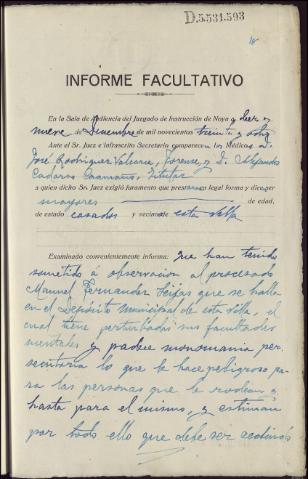 D.5.531.593
INFORME FACULTATIVO
En la Sala de Audiencia del Juzgado de Instrucción de Noya a diez y
nueve de Diciembre de mil novecientos treinta y ocho
Ante el Sr. Juez e infrascrito Secretario comparecen los Médicos D.
José Rodríguez Valeiras, Forense y D. Alejandro
Cadarso Mamaño, Titular
a quien dicho Sr. Juez exigió juramento que prestaron legal forma y dice ser
mayores de edad,
de estado casados y vecinos de esta villa
Examinado convenientemente informa: Que han tenido
sometido á observación al procesado
Manuel Fernandez Seijas que se halla
en el Depósito Municipal de esta villa, el
cual tiene perturbadas sus facultades
mentales y padece monomanía per-
secutoria lo que le hace peligroso pa-
ra las personas que le rodean y
hasta para el mismo, y estiman
por todo ello que debe ser